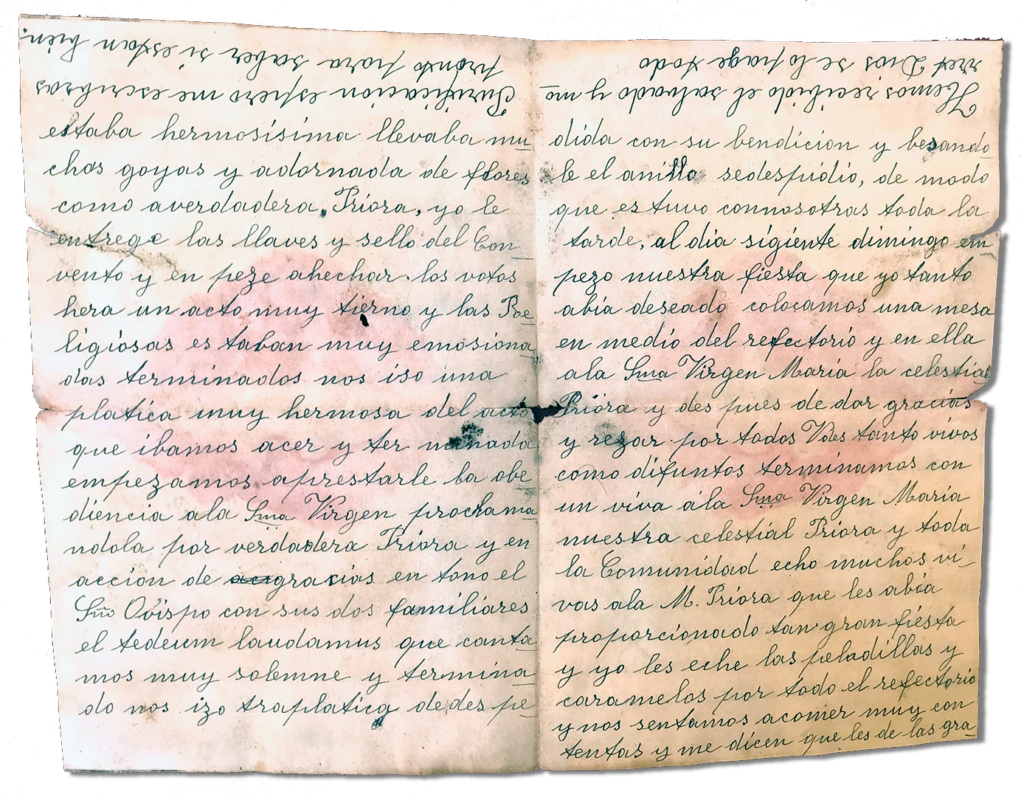 Purificacion espero me escribiras
pronto para saber si estan bien.
estaba hermosísima llevaba mu_
chas goyas y adornada de flores
como averdadera, Priora, yo le
entrege las llaves y sello del Con_
vento y en peze ahechar los votos
hera un acto muy tierno y las Re_
ligiosas estaban muy emosiona_
das terminados nos iso una
platica muy hermosa del acto
que ibamos acer y ter minada
empezamos aprestarle la obe_
diencia ala Sma Virgen proclama_
ndola por verdadera Priora y en
accion de gracias en tono el
Sño Ovispo con sus dos familiares
el tedeum laudamus que canta_
mos muy solemne y termina_
do nos izo traplatica dedes pe_
Hemos recibido el salvado y
Dios se lo page todo
dida con su bendicion y besando_
le el anillo sedespidio, de modo
que es tuvo connosotras toda la
tarde, al dia sigiente dimingo em_
pezo nuestra fiesta que yo tanto
abia deseado colocamos una mesa
en medio del refectorio y en ella
ala Sma Virgen Maria la celestial
Priora y des pues de dar gracias
y rezar por todos Vdes tanto vivos
como difuntos terminamos con
un viva ala Sma Virgen Maria
nuestra celestial Priora y toda
la Comunidad echo muchos vi_
vas ala M. Priora que les abia
proporcionado tan gran fiesta
y yo les eche las peladillas y
caramelos por todo el refectorio
y nos sentamos acomer muy con_
tentas y me dicen que les de las gra_